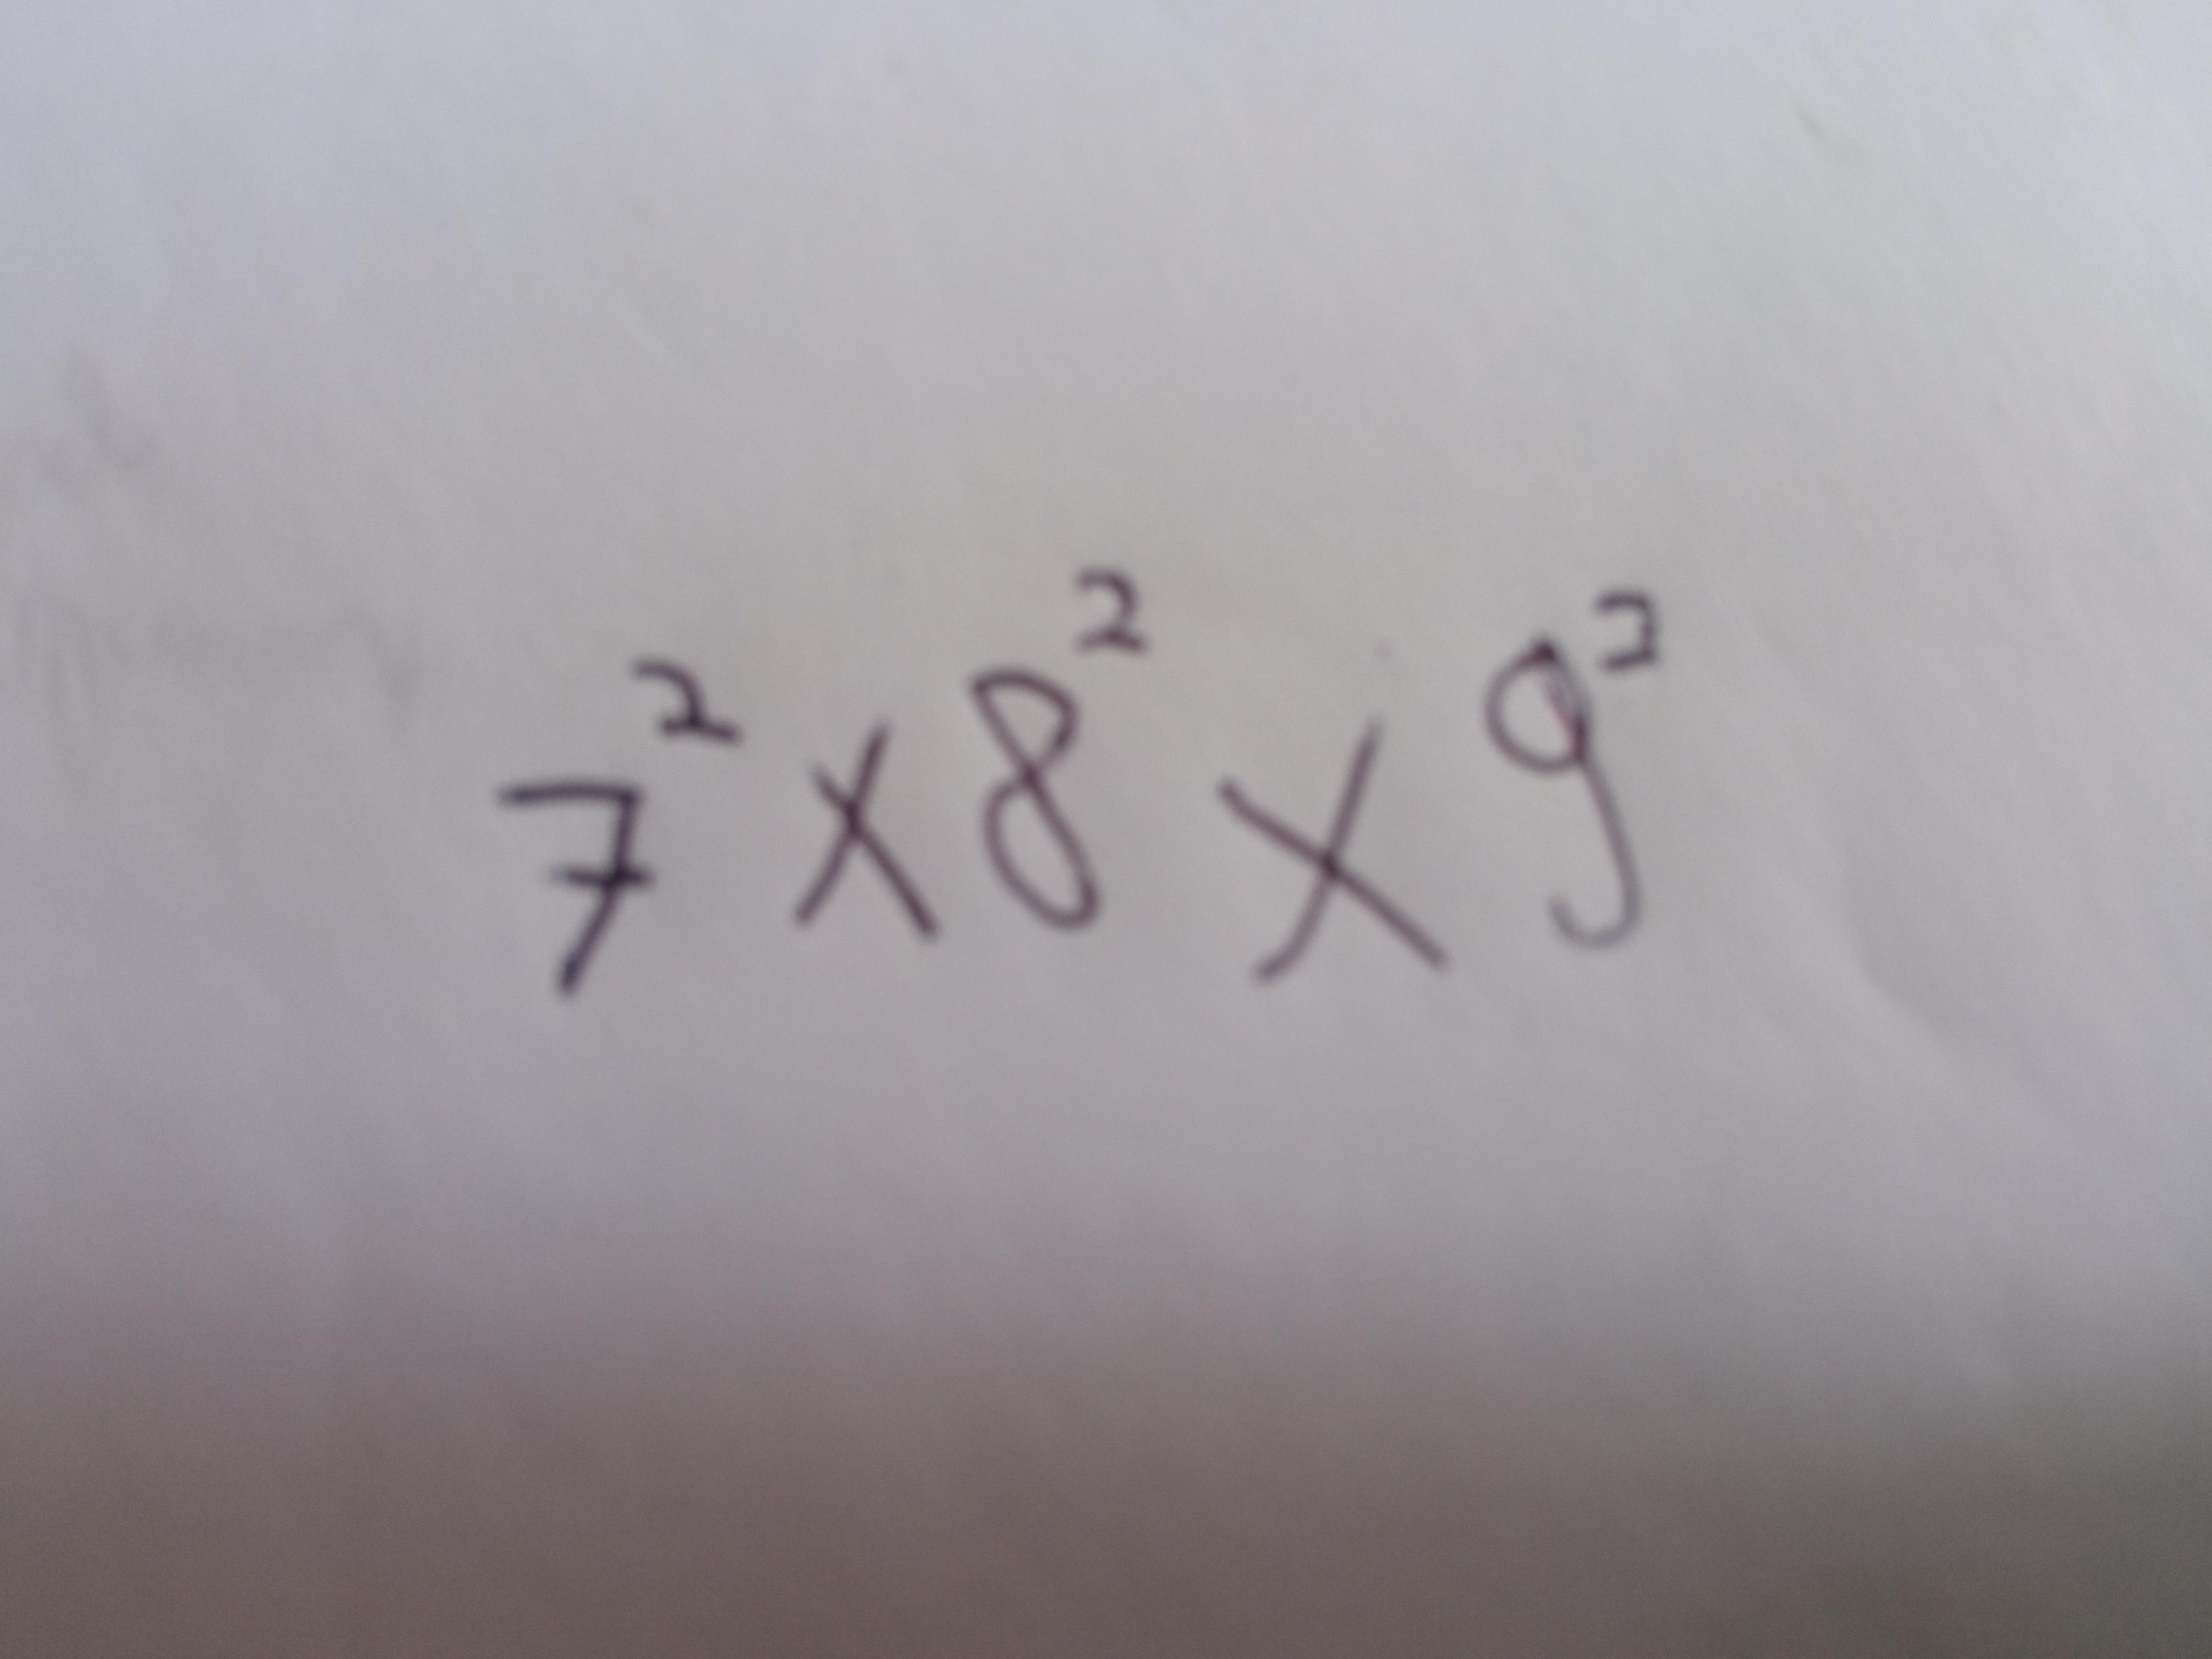 7² × 8² × 9²